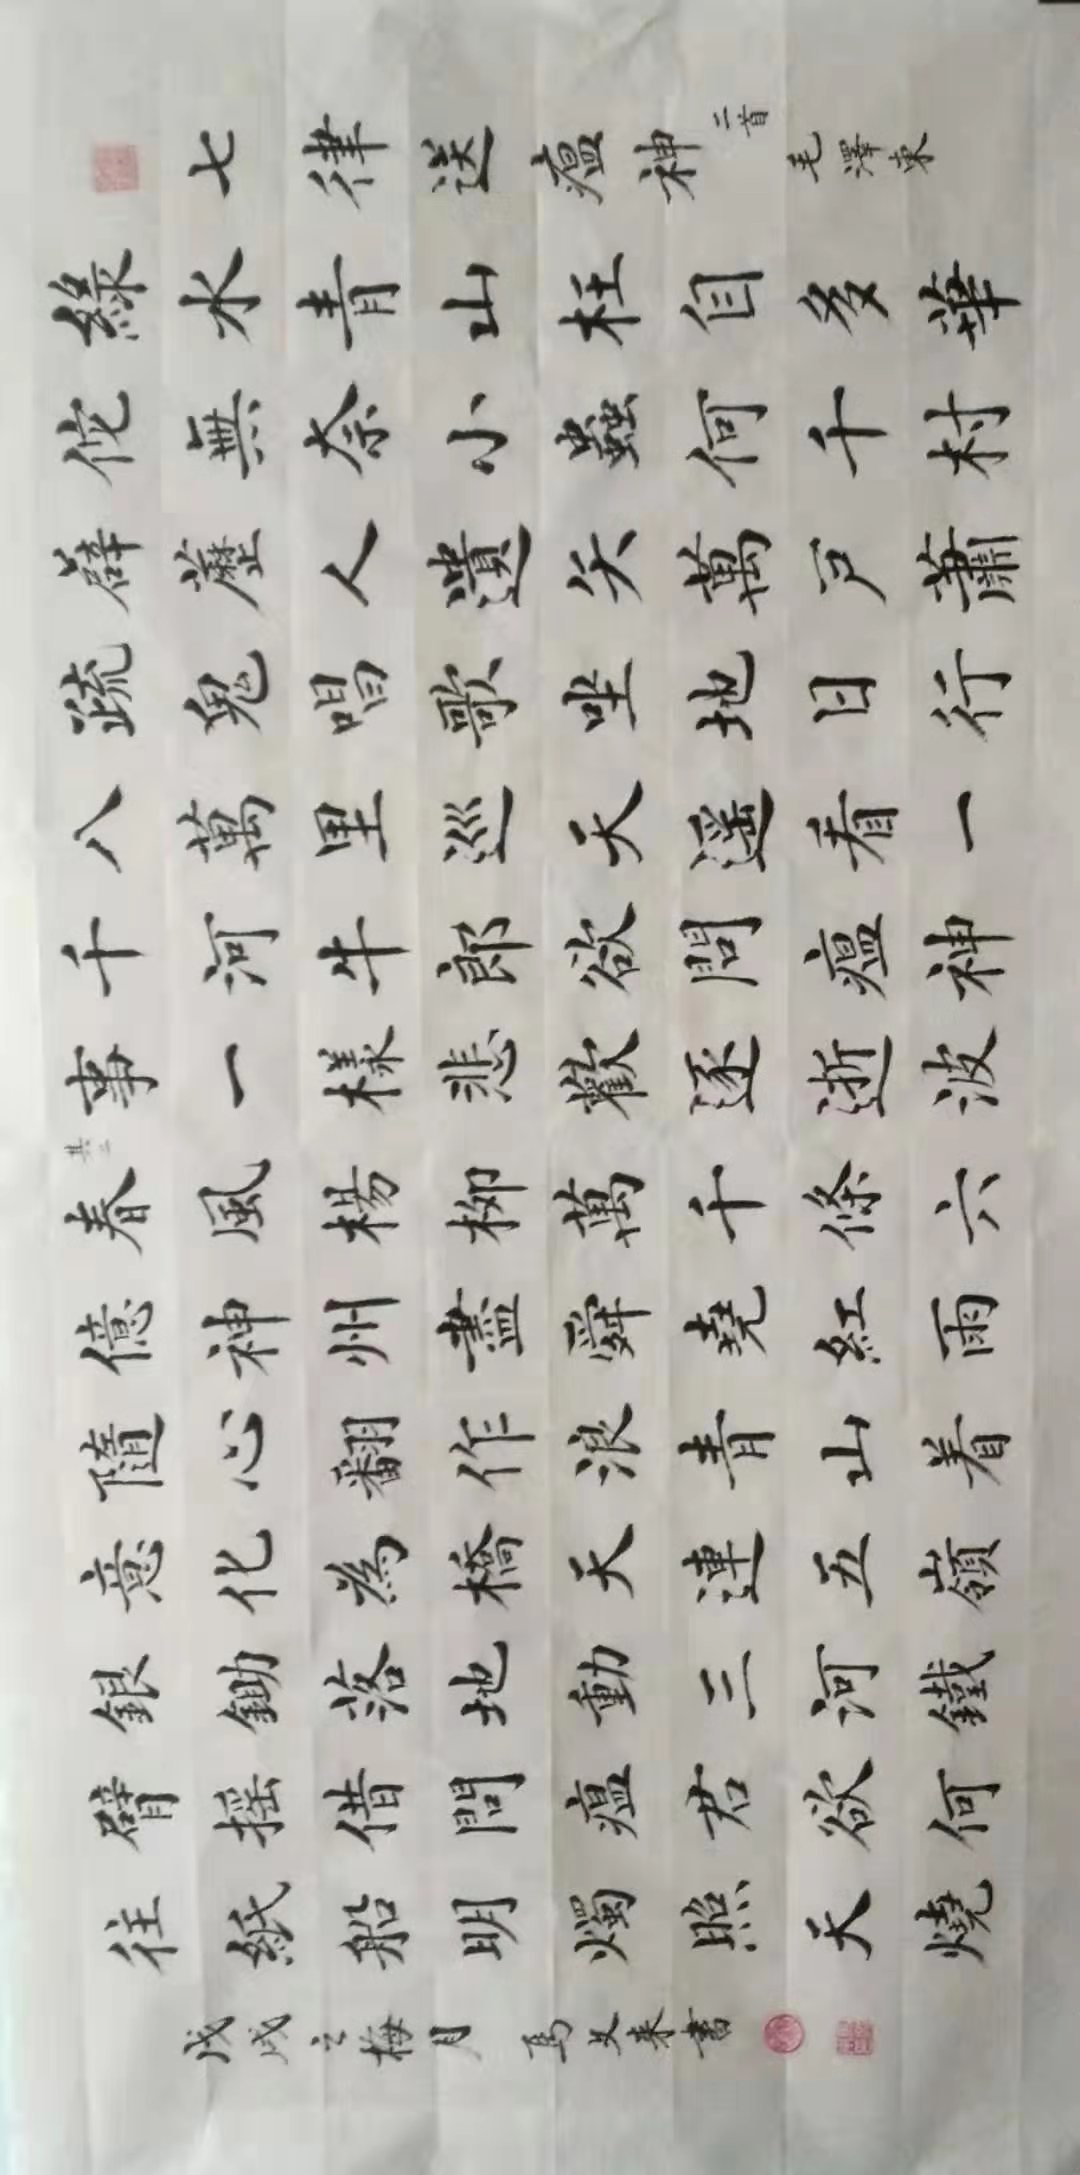 七律送瘟神二首 毛澤東
綠水青山枉自多華
佗無奈小蟲何千村
薜藶人遺矢萬戶蕭
疏鬼唱歌坐地日行
八萬里巡天遥看一
千河牛郎欲問瘟神
事一樣悲歡逐逝波
其二
春風楊柳萬千條六
億神州盡舜堯紅雨
隨心翻作浪青山着
意化為橋天連五嶺
銀鋤落地動三河鐵
臂摇借問瘟君欲何
往紙船明燭照天燒
戊戌之梅月 馬来書